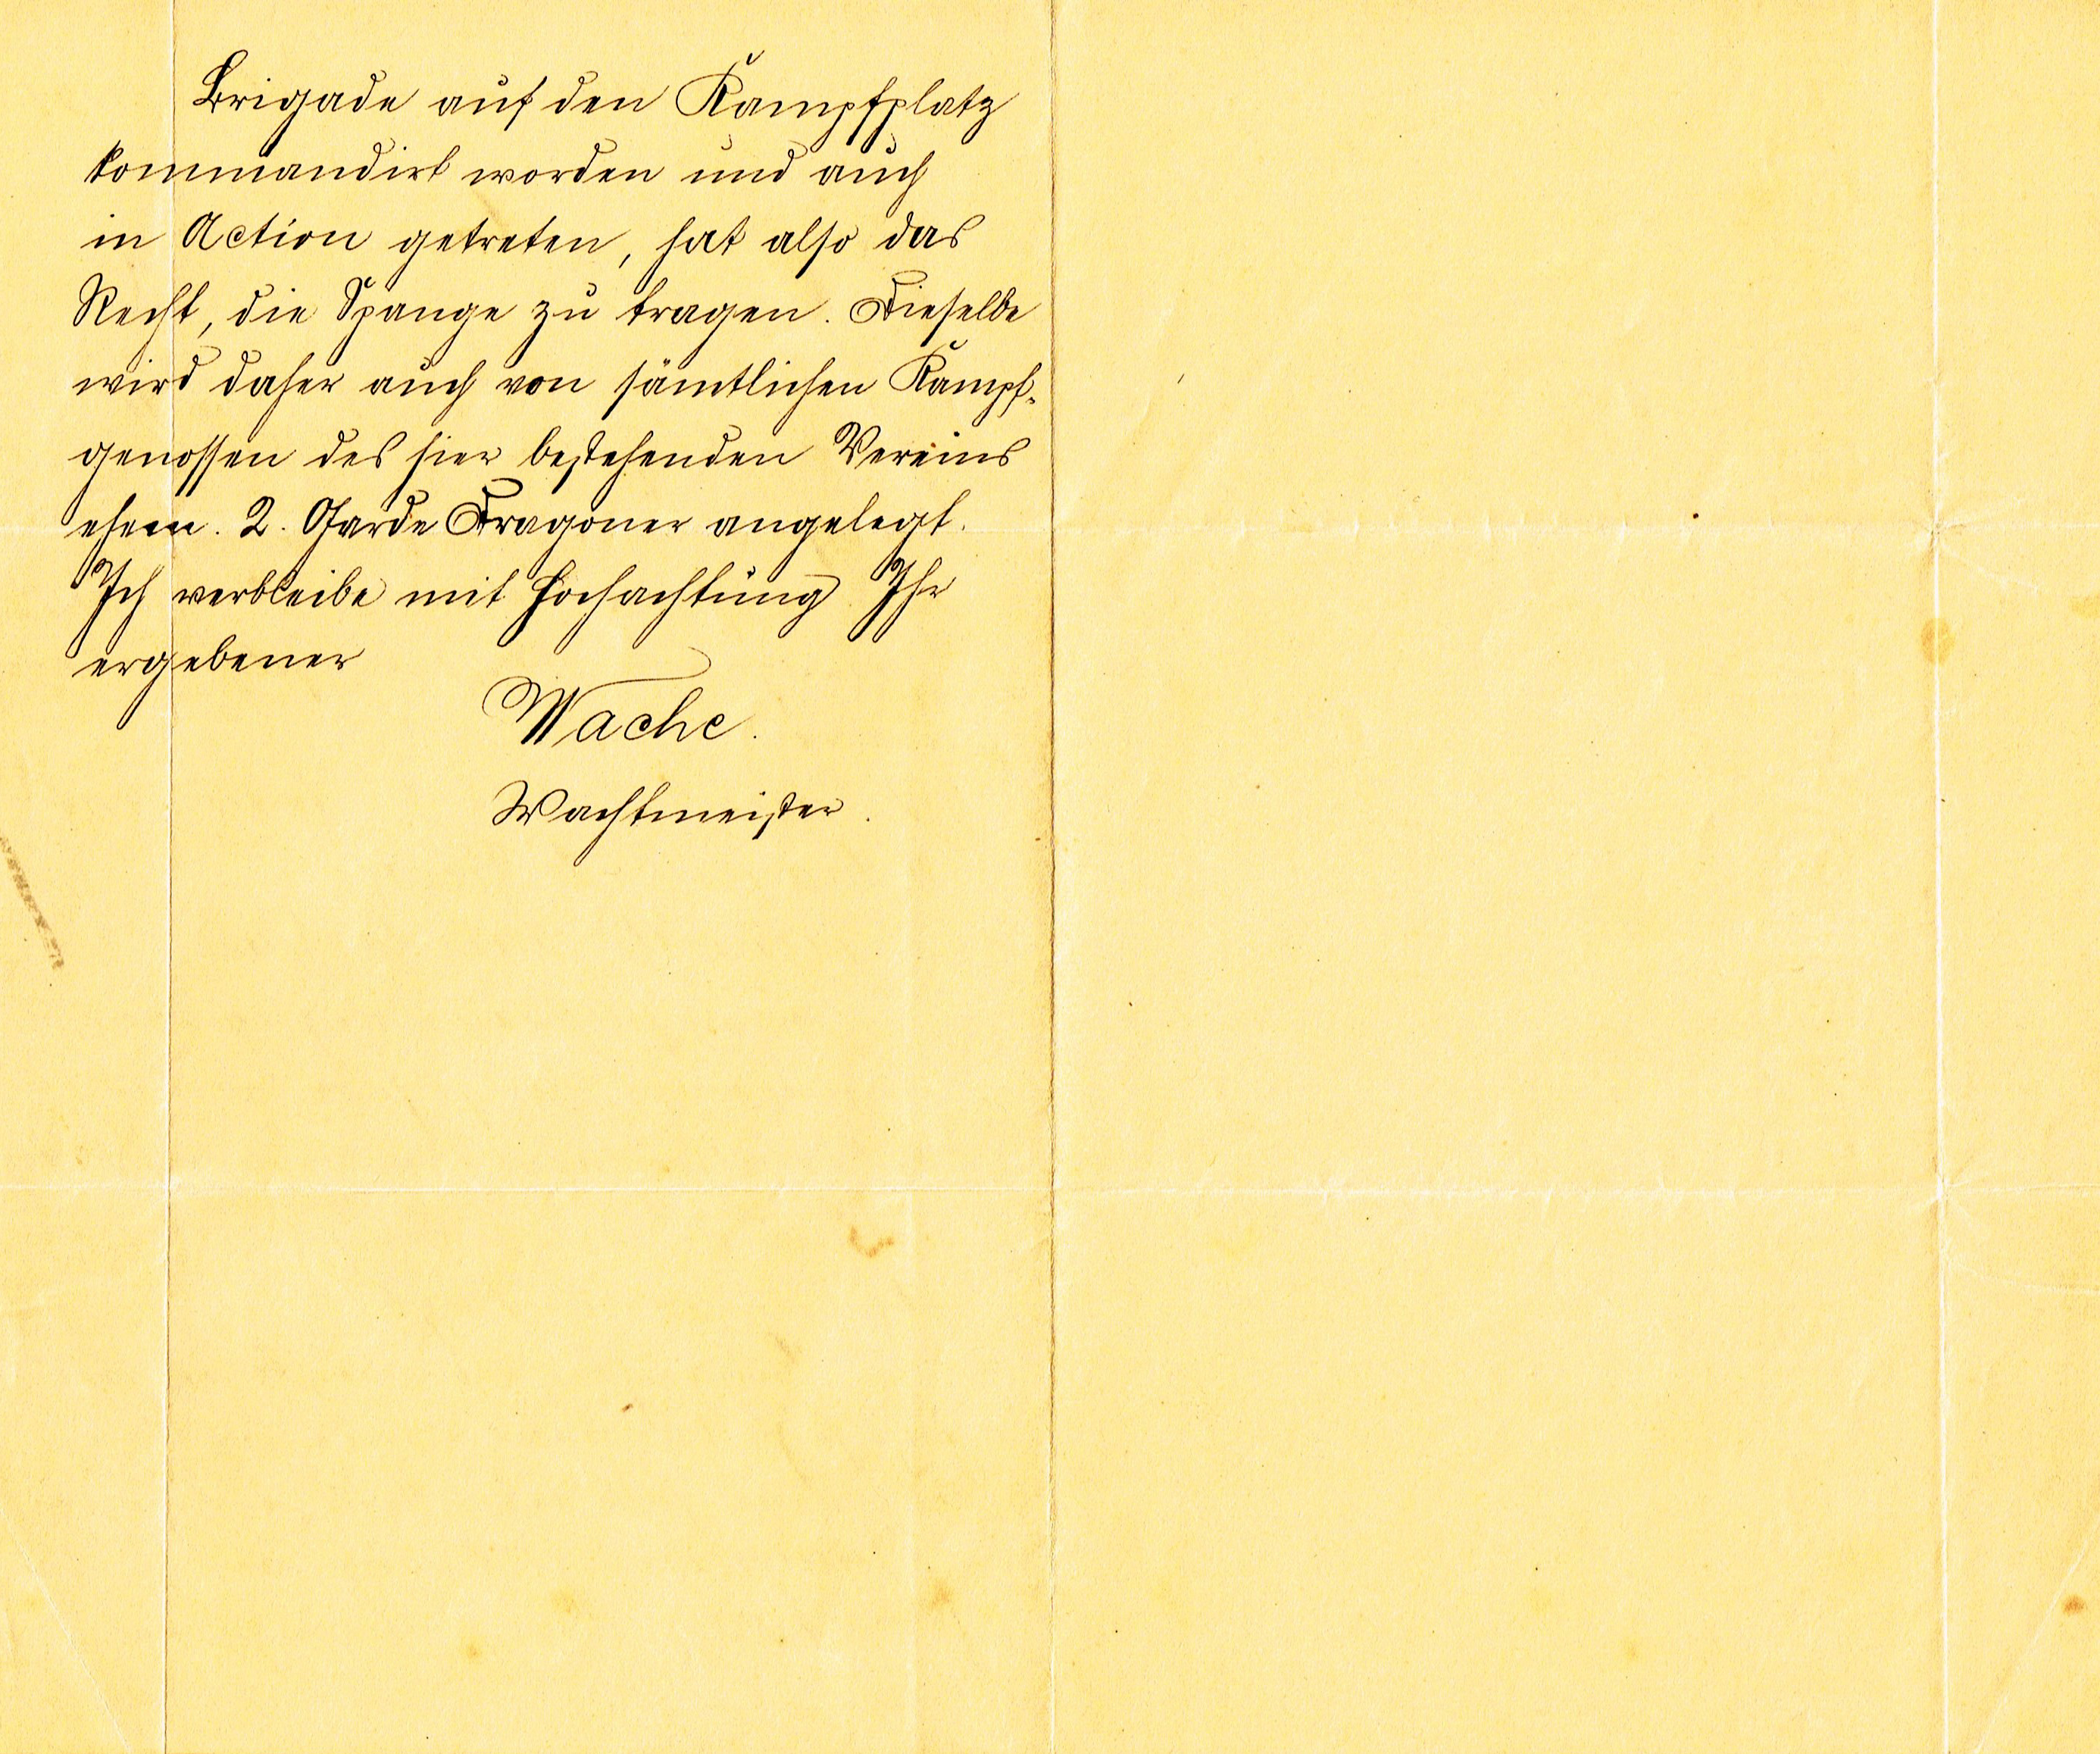 Brigade auf den Kampfplatz
kommandirt worden und auch
in Action getreten, hat also das
Recht, die Spange zu tragen. Dieselbe
wird daher auch von sämtlichen Kampf-
genossen des hier bestehenden Vereins
ehem. 2. Garde Dragoner angelegt.
Ich verbleibe mit Hochachtung Ihr
ergebener
Wache.
Wachtmeister.